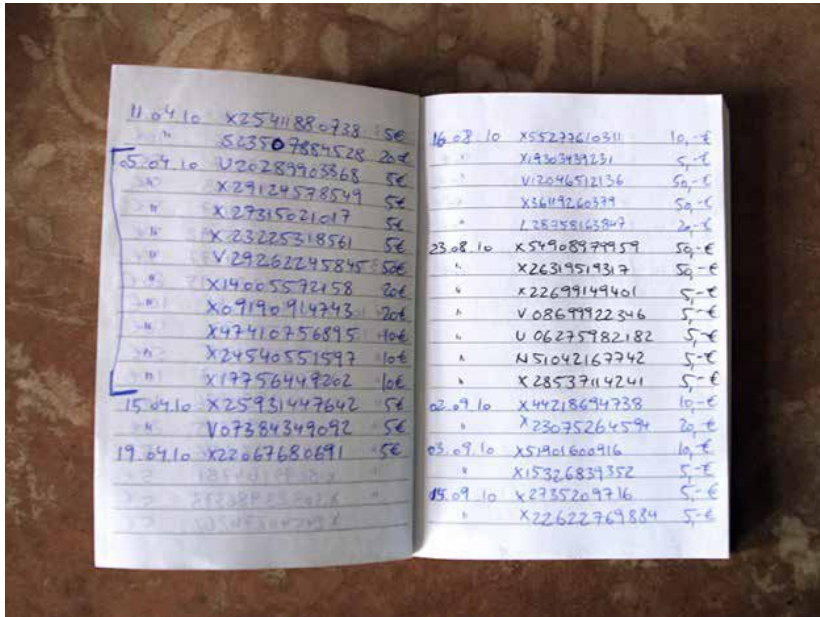 11.04.10 X25411880738 5€
" S23507884528 20€
05.04.10 U20289903368 5€
" X29124578549 5€
" X27315021017 5€
" X23225318561 5€
" V29262245845 50€
" X14005572158 20€
" X09190914743 20€
" X47410756895 10€
" X24540551597 10€
" X17756449202 10€
15.04.10 X25931447642 5€
" V07384349092 5€
19.04.10 X22067680691 5€
16.08.10 X55277610311 10,-€
" X19303439231 5,-€
" V12046512136 50,-€
" X36119260379 50,-€
" L28758163847 20,-€
23.08.10 X54908979959 50,-€
" X26319519317 50,-€
" X22699149401 5,-€
" V08699922346 5,-€
" U06275982182 5,-€
" N51042167742 5,-€
" X28537114241 5,-€
02.09.10 X44218694738 10,-€
" X23075264594 20,-€
03.09.10 X51901600916 10,-€
" X15326839352 5,-€
15.09.10 X2735209716 5,-€
" X22622769884 5,-€